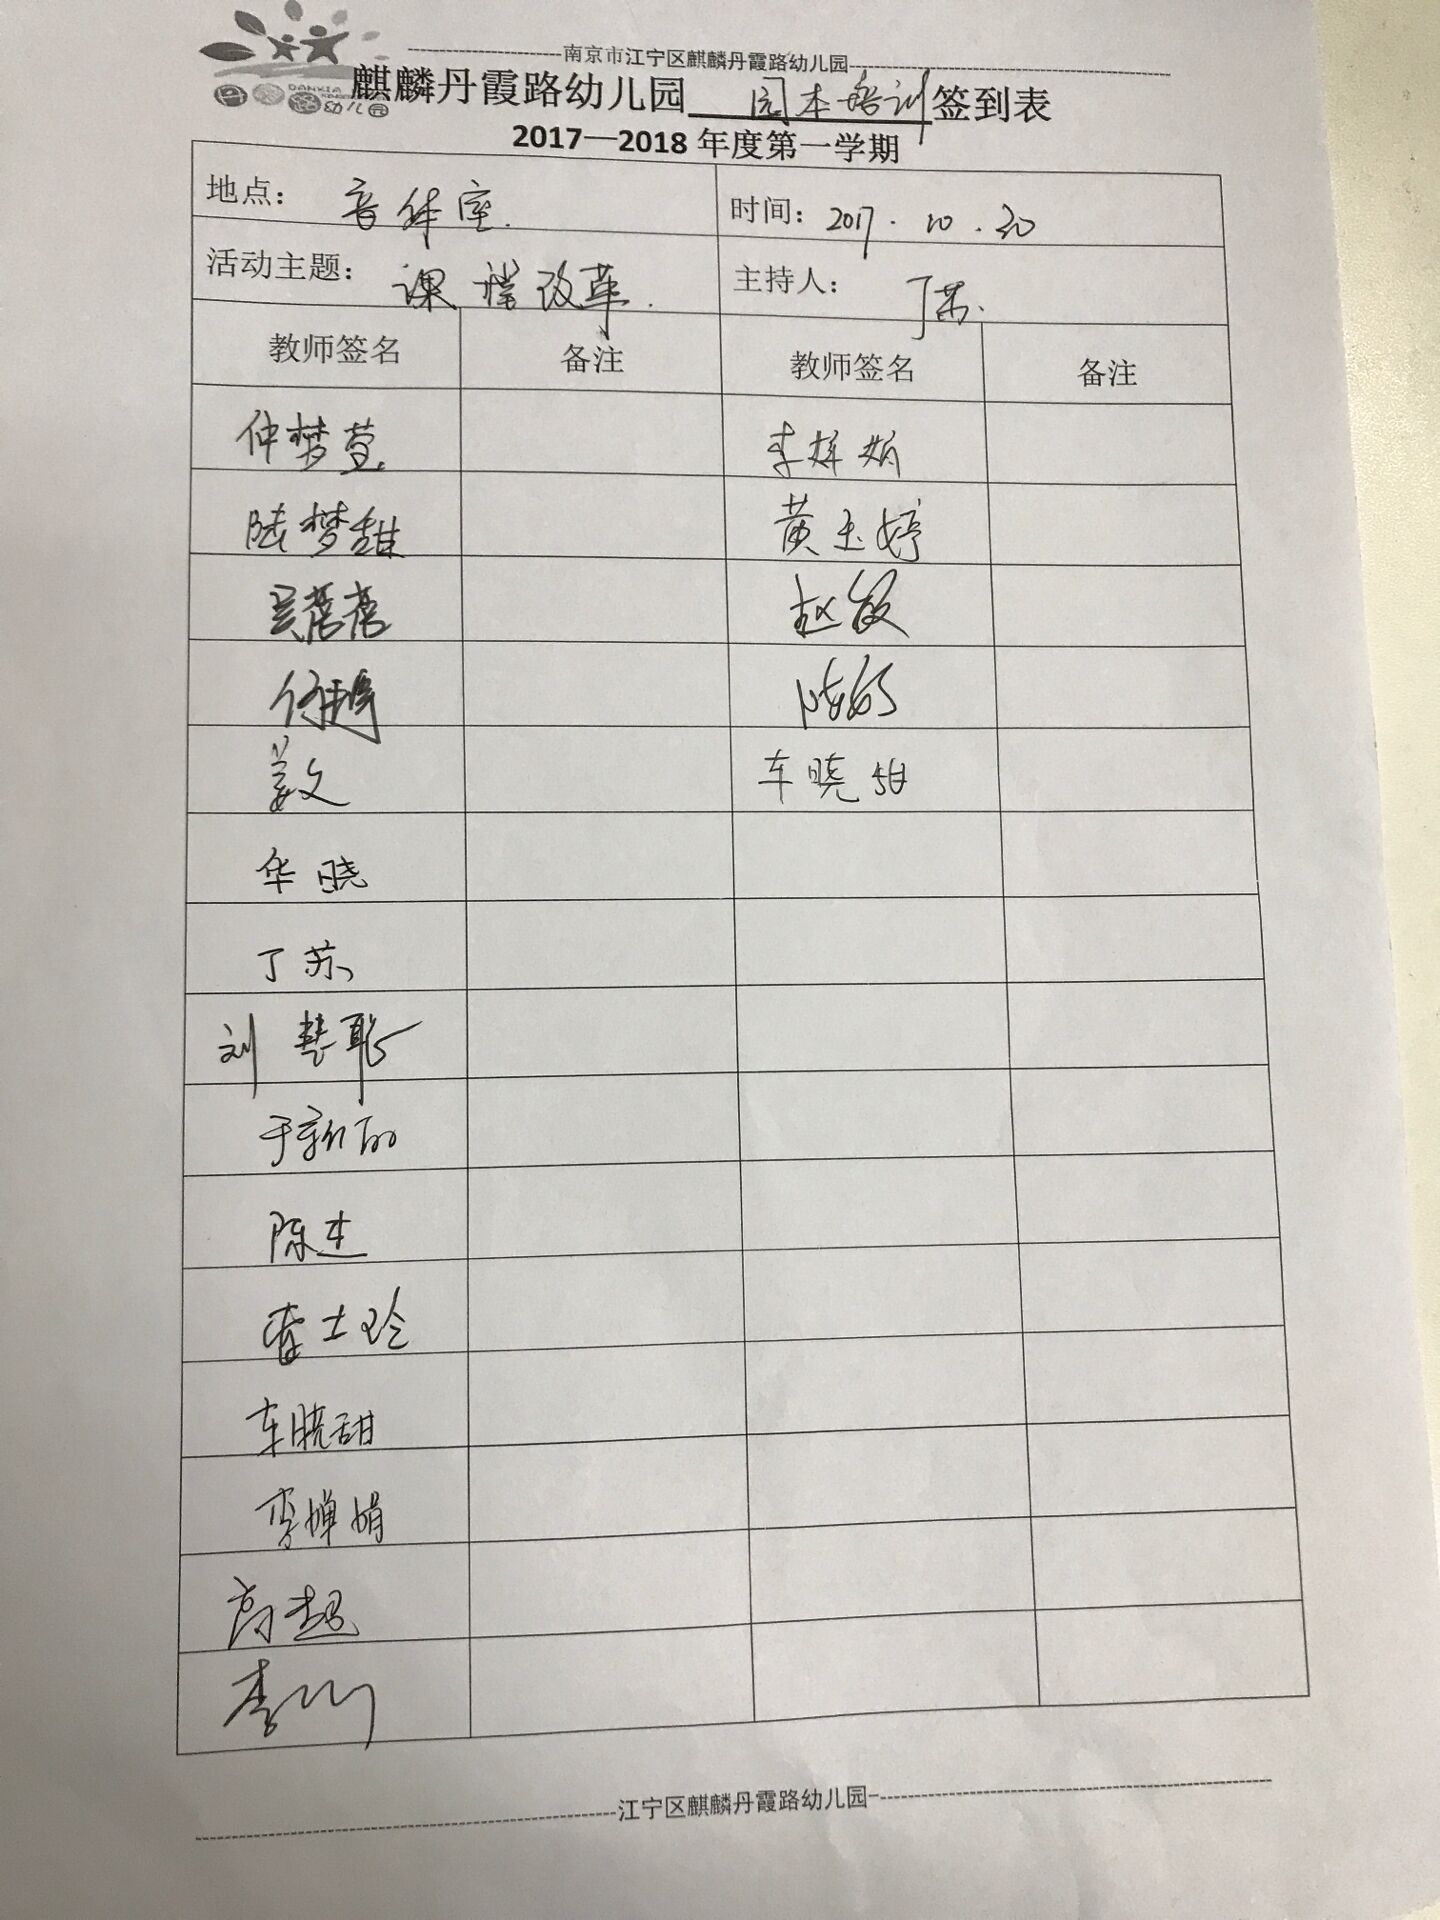 南京市江宁区麒麟丹霞路幼儿园
DANXIA
丹霞路幼儿园
麒麟丹霞路幼儿园 园本培训 签到表
2017—2018 年度第一学期
地点： 音体室. 时间：2017.10.20
活动主题： 课程改革. 主持人： 丁苏.
教师签名 备注 教师签名 备注
仲梦萱
陆梦甜 黄玉婷
吴蓓蓓 赵敏
姜文 车晓甜
华晓
丁苏
刘慧聪
于新丽
陈杰
雷士玲
车晓甜
李婵娟
高超
江宁区麒麟丹霞路幼儿园